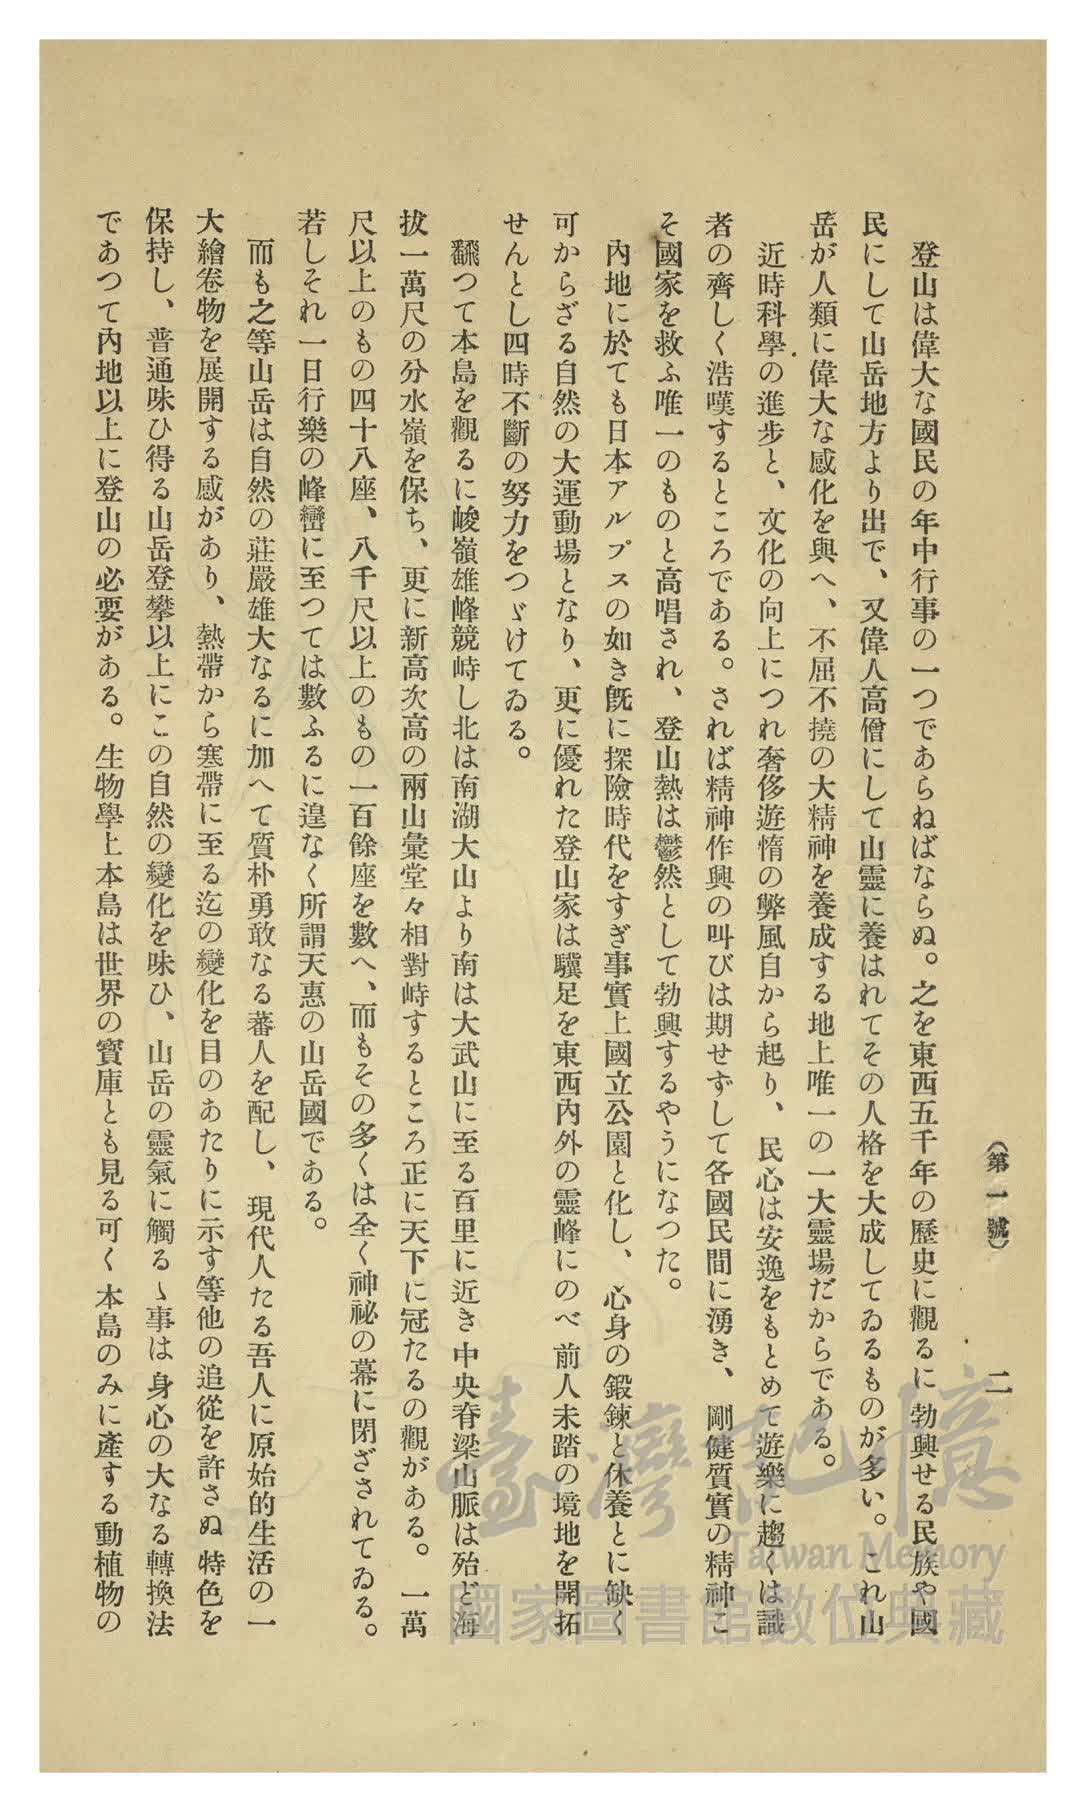 （第一號）
二
登山は偉大な國民の年中行事の一つであらねばならぬ。之を東西五千年の歷史に觀るに勃興せる民族や國
民にして山岳地方より出で、又偉人高僧にして山靈に養はれてその人格を大成してゐるものが多い。これ山
岳が人類に偉大な感化を與へ、不屈不撓の大精神を養成する地上唯一の一大靈場だからである。
近時科學の進步と、文化の向上につれ奢侈遊惰の弊風自から起り、民心は安逸をもとめて遊樂に趨くは識
者の齊しく浩嘆するところである。されば精神作興の叫びは期せずして各國民間に湧き、剛健質實の精神こ
そ國家を救ふ唯一のものと高唱され、登山熱は鬱然として勃興するやうになつた。
內地に於ても日本アルプスの如き旣に探險時代をすぎ事實上國立公園と化し、心身の鍛鍊と休養とに缺く
可からざる自然の大運動場となり、更に優れた登山家は驥足を東西內外の靈峰にのべ前人未踏の境地を開拓
せんとし四時不斷の努力をつゞけてゐる。
飜つて本島を觀るに峻嶺雄峰競峙し北は南湖大山より南は大武山に至る百里に近き中央脊梁山脈は殆ど海
拔一萬尺の分水嶺を保ち、更に新高次高の兩山彙堂々相對峙するところ正に天下に冠たるの觀がある。一萬
尺以上のもの四十八座、八千尺以上のもの一百餘座を數へ、而もその多くは全く神祕の幕に閉ざされてゐる。
若しそれ一日行樂の峰巒に至つては數ふるに遑なく所謂天惠の山岳國である。
而も之等山岳は自然の莊嚴雄大なるに加へて質朴勇敢なる蕃人を配し、現代人たる吾人に原始的生活の一
大繪卷物を展開する感があり、熱帶から寒帶に至る迄の變化を目のあたりに示す等他の追從を許さぬ特色を
保持し、普通味ひ得る山岳登攀以上にこの自然の變化を味ひ、山岳の靈氣に觸るゝ事は身心の大なる轉換法
であつて內地以上に登山の必要がある。生物學上本島は世界の寶庫とも見る可く本島のみに產する動植物の
臺灣記憶
Taiwan Memory
國家圖書館數位典藏